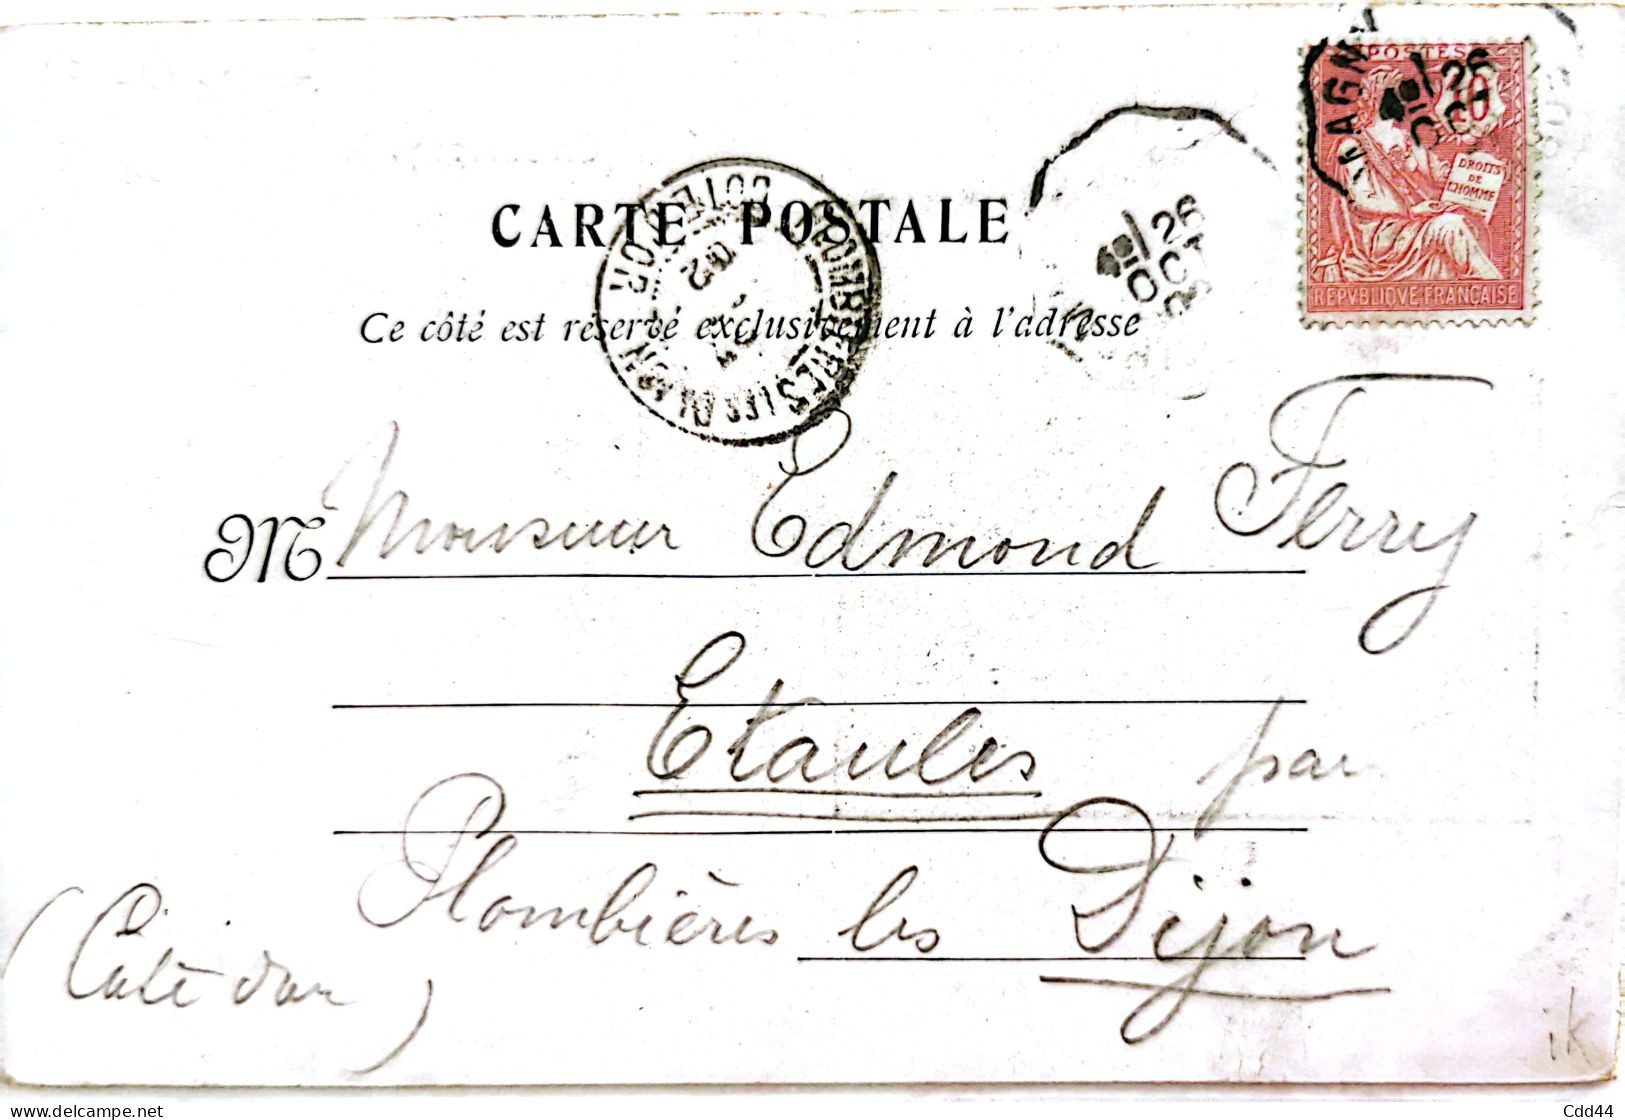 POSTES
10
DROITS
DE
L'HOMME
REPVBLIQVE FRANÇAISE
26
OCT
CARTE POSTALE
26
OCT
PLOMBIERES LES DIJON
COTE D'OR
02
Ce côté est réservé exclusivement à l'adresse
M Monsieur Edmond Ferry
Etaules par
Plombières les Dijon
(Côte d'or)
ik
Cdd44